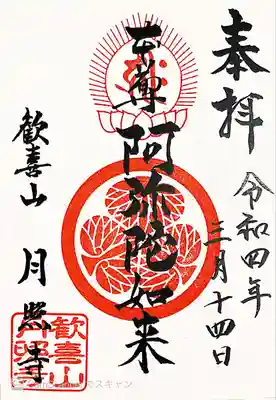 奉拝
令和四年
三月十四日
本尊
阿弥陀如来
歓喜山 月照寺
歓喜山
月照寺